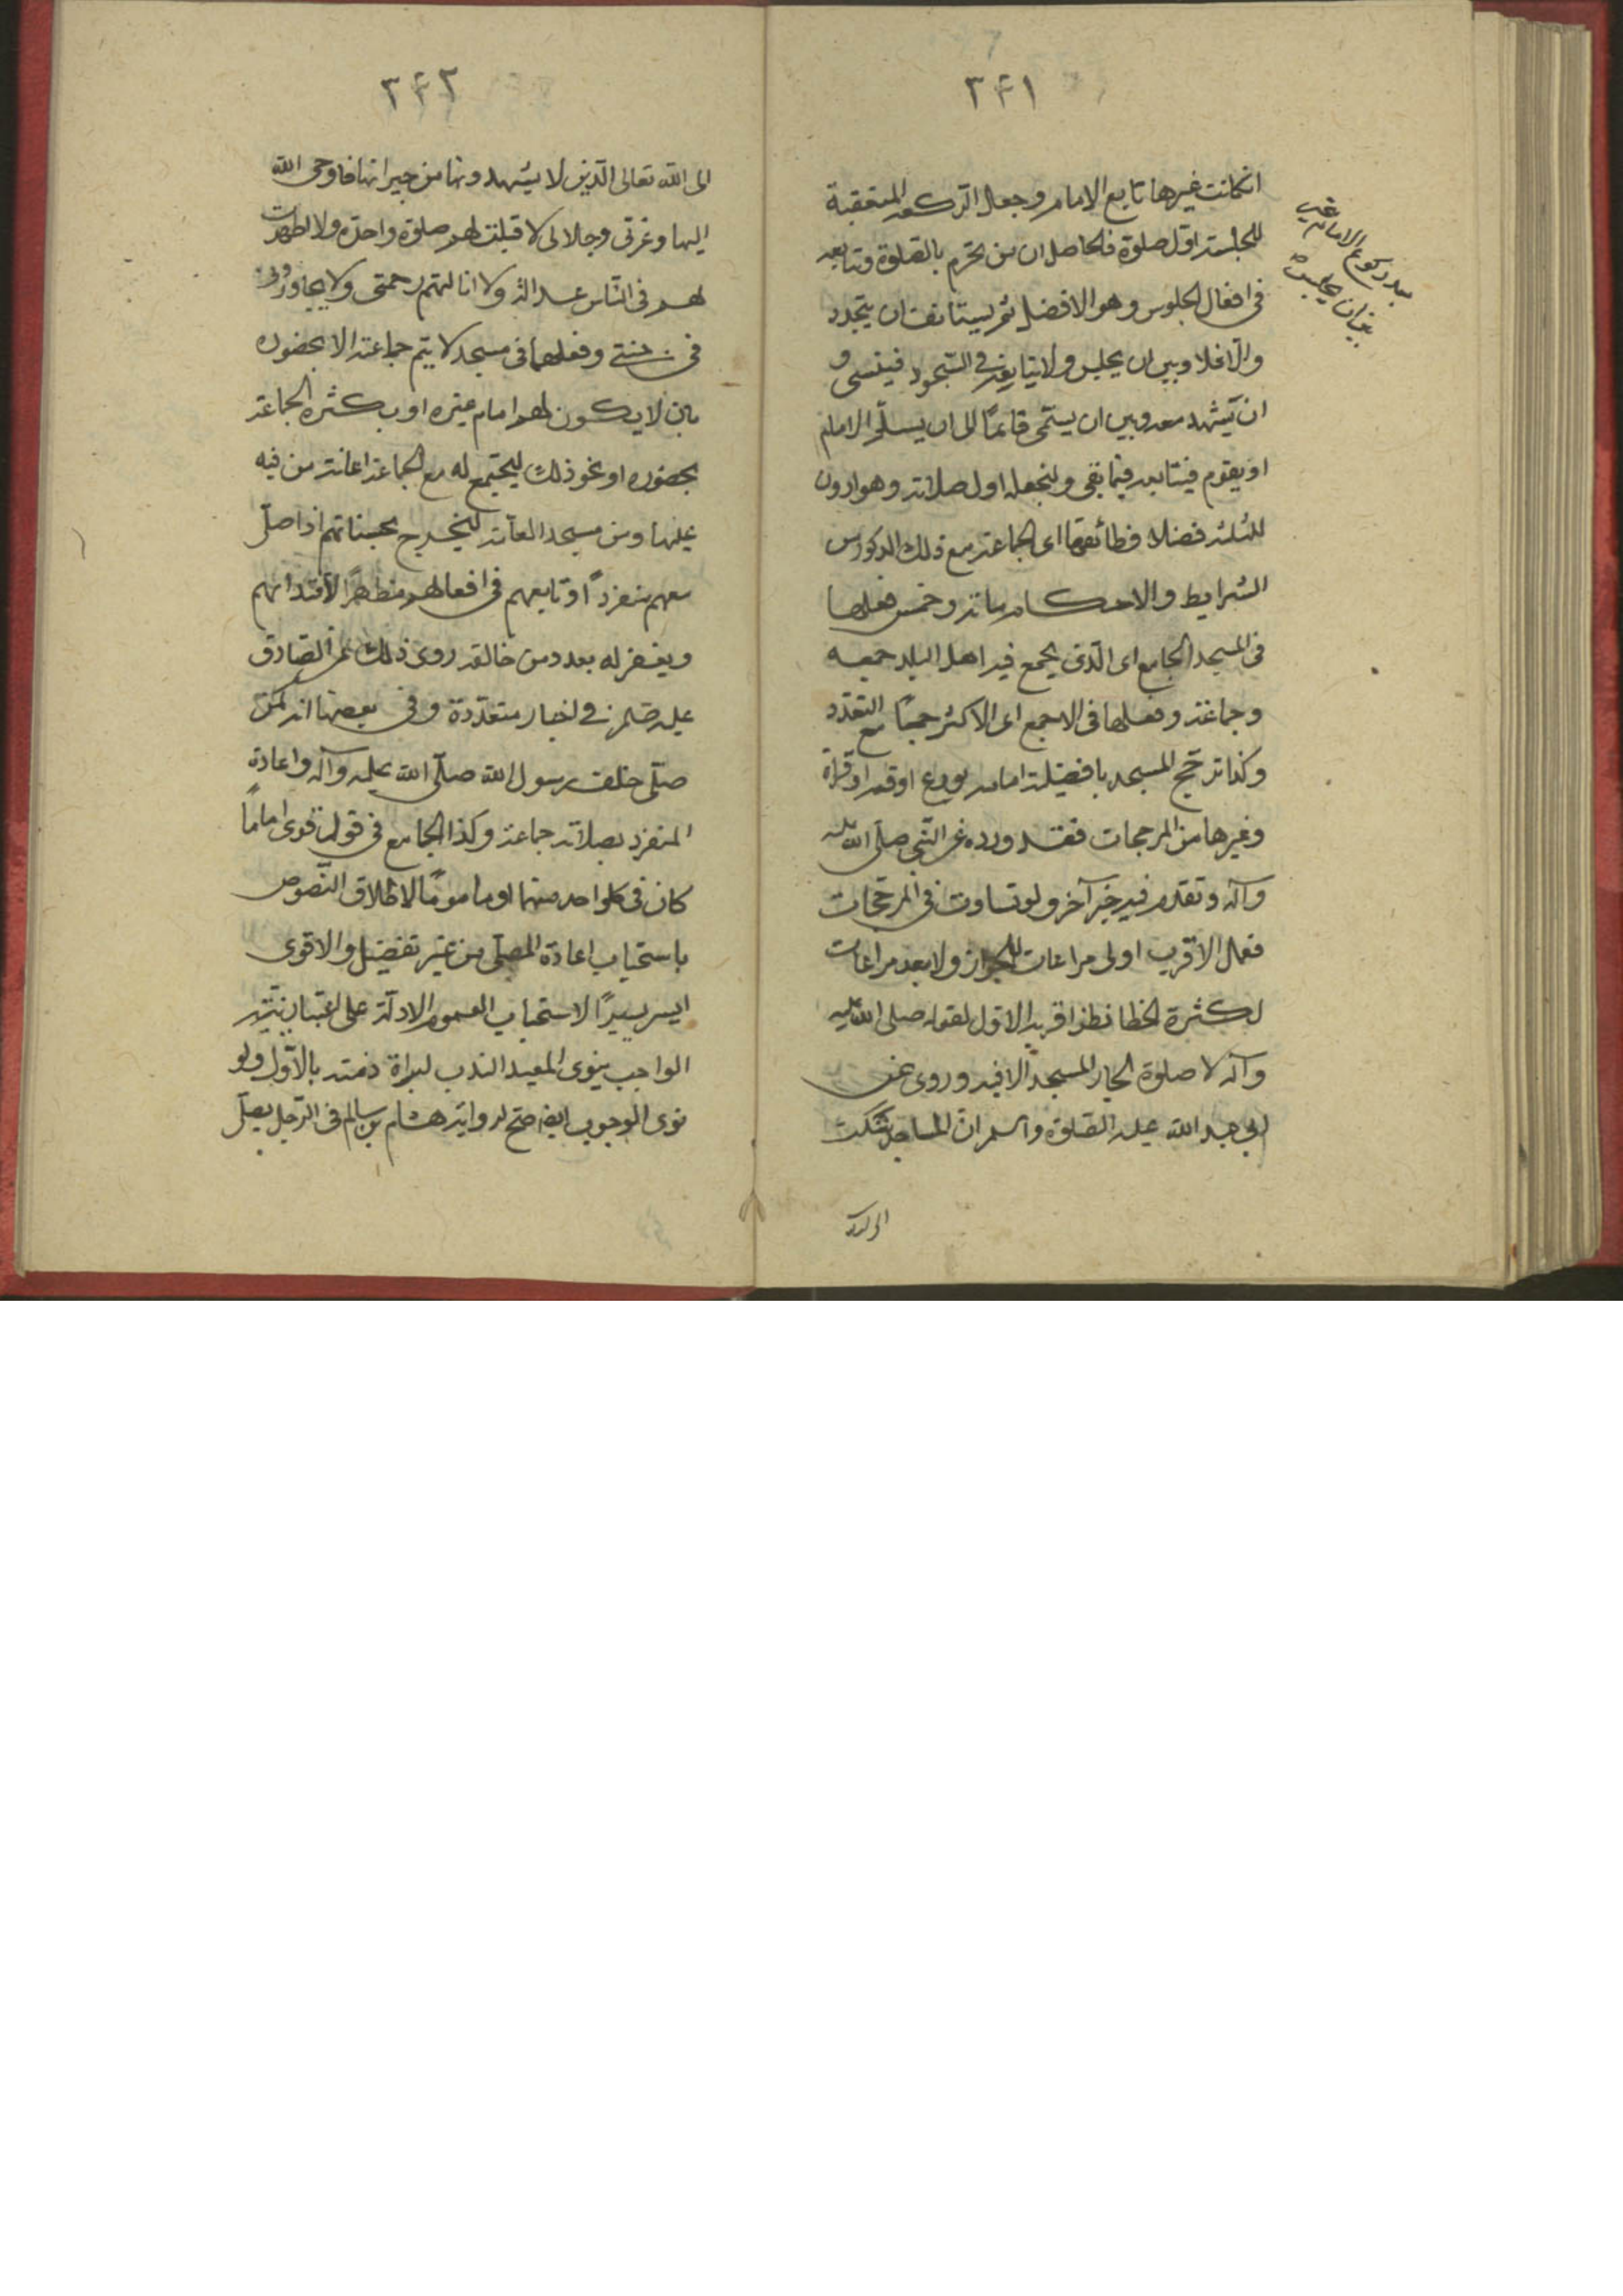 ٢۴١
انكانت غيرها تابع الامام وجعل الركعة المتعقبة
للجلسة اول صلوة فالحاصل ان من تحرم بالصلوة وتابعه
فى افعال الجلوس وهو الافضل ثم يستانف ان يتجدد
والا فلا وبين ان يجلس ولا يتابعه فى السجود فينسى و
ان يتشهد معه وبين ان يستمى قائما الى ان يسلم الامام
او يقوم فيتابعه فيما بقى وليجعله اول صلاته وهو ادون
للثلثة فضلا وظائفها اى الجماعة مع ذلك المذكور من
الشرايط والاحكام مائة وخمس فعلها
فى المسجد الجامع اى الذى يجمع فيه اهل البلد جمعه
وجماعة وفعلها فى الاجمع اى الاكثر جمعًا مع التعدد
وكذا ترجح المسجد بافضيلة امامه بورع او فقه او قراة
وغيرها من المرجحات فقد ورده عن النبى صلى الله عليه
وآله وتقدم فيه خبر آخر ولو تساوت فى المرجحات
فعل الاقرب اولى مراعات للجوار ولا بعد مراعات
لكثرة الخطا نظرا قربه الاول لقوله صلى الله عليه
وآله لا صلوة لجار المسجد الا فيه وروى عن
ابى عبد الله عليه الصلوة والسلم ان المساجد شكت
بعد ركوع الامام
بين ان يجلس
٢۴٢
الى الله تعالى الذين لا يشهدونها من جيرانها فاوحى الله
اليها وعزتى وجلالى لا قبلت لهم صلوة واحدة ولا اظهرت
لهم فى الناس عدالة ولا انالتهم رحمتى ولا يجاورونى
فى جنتى وفعلها فى مسجد لا يتم جماعته الا بحضوره
بان لا يكون لهم امام غيره او بكثرة الجماعة
بحضوره او نحو ذلك ليجتمع له مع الجماعة اعانت من فيه
عليها ومن مسجد العامة ليخرج بحسناتهم اذا صلى
معهم منفردًا وتابعهم فى افعالهم مظهرًا لاقتدائهم
ويغفر له بعدد من خالفه روى ذلك عن الصادق
عليه السلم فى اخبار متعددة وفى بعضها انه كمن
صلى خلف رسول الله صلى الله عليه وآله واعادة
المنفرد بصلاته جماعة وكذا الجامع فى قول قوى اماما
كان فى كل واحد منهما او ماموما لاطلاق النصوص
باستحباب اعادة المصلى من غير تفضيل والاقوى
استحباب العموم الادلة على اعتبار نية
الواجب ينوى المعيد الندب لبراة ذمته بالاول ولو
نوى الوجوب ايضا صح لرواية هشام بن سالم فى الرجل يصلى